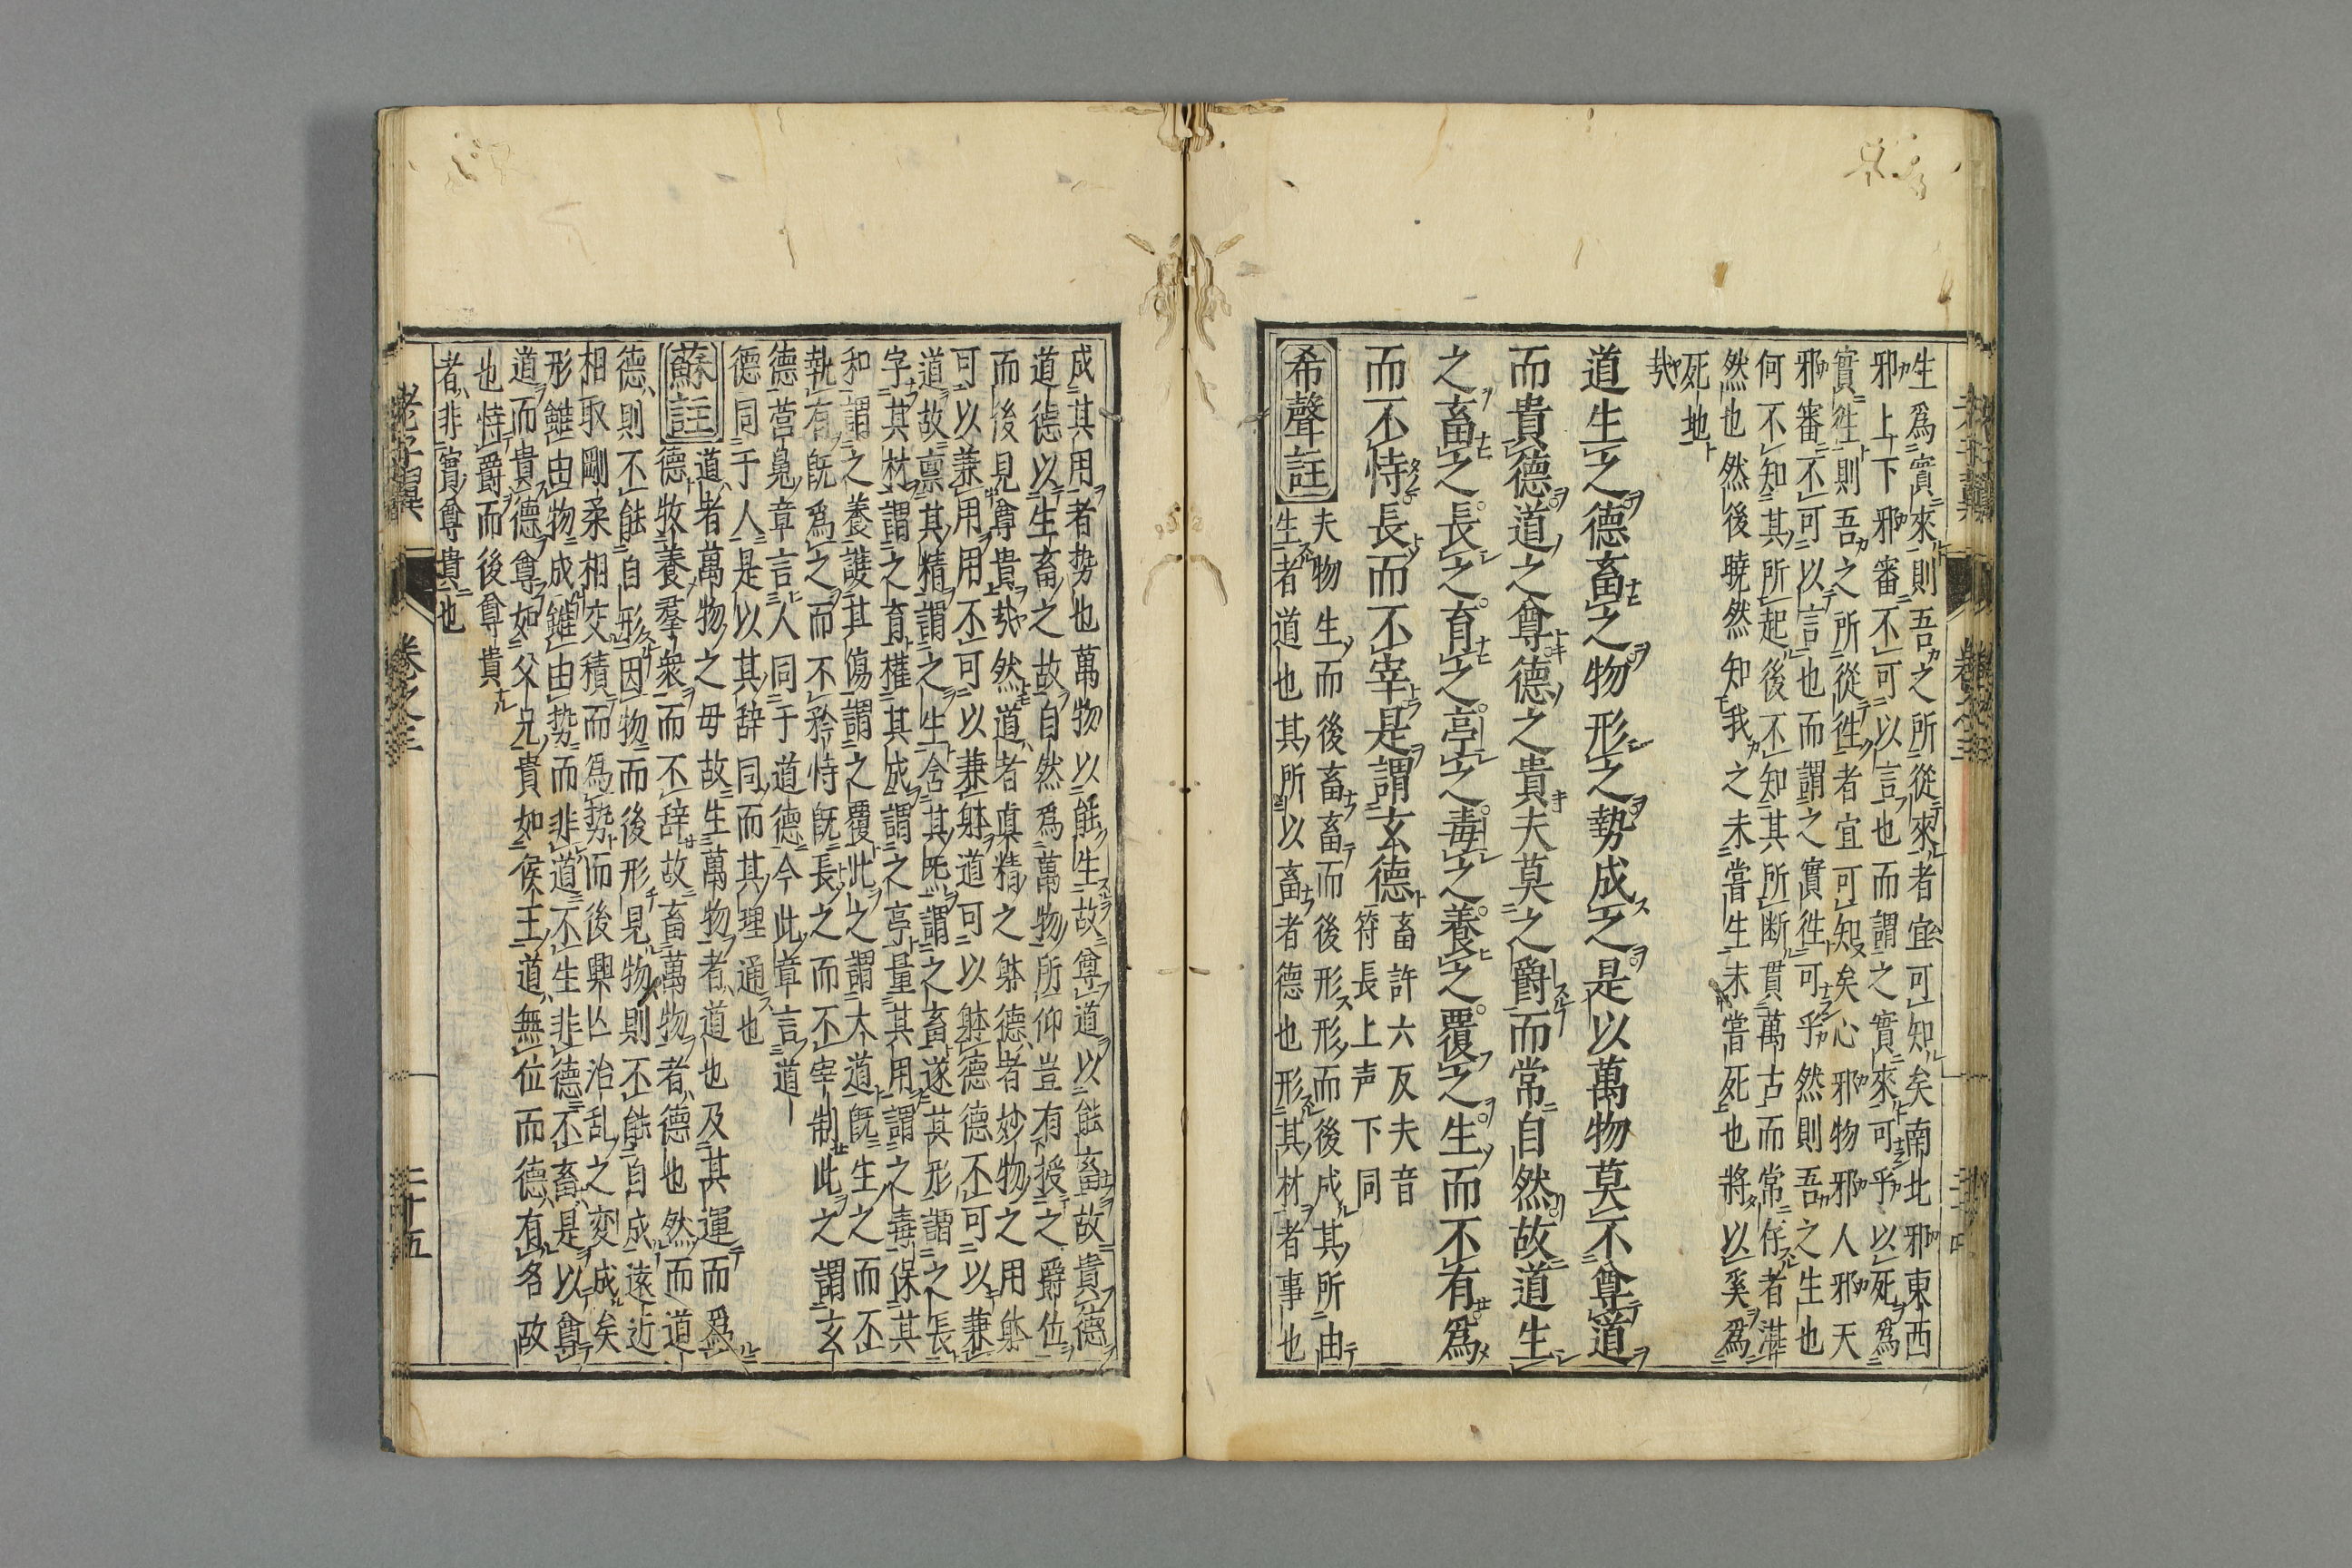 生爲實來則吾之所從來者宜可知矣南北邪東西
邪上下邪審不可以言也而謂之實來可乎以死爲
實往則吾之所從往者宜可知矣心邪物邪人邪天
邪審不可以言也而謂之實往可乎然則吾之生也
何不知其所起後不知其所断貫萬古而常存者湛
然也然後曉然知我之未嘗生未嘗死也將以奚爲
死地
㢤
道生之德畜之物形之勢成之是以萬物莫不尊道
而貴德道之尊德之貴夫莫之爵而常自然故道生
之畜之長之育之亭之毒之養之覆之生而不有爲
而不恃長而不宰是謂玄德
畜許六反夫音
符長上声下同
希聲註
夫物生而後畜畜而後形形而後成其所由
生者道也其所以畜者德也形其材者事也
老子翼 卷之三 二十四
成其用者势也萬物以能生故尊道以能畜故貴德
道德以生畜之故自然爲萬物所仰豈有授之爵位
而後見尊貴㢤然道者真精之躰德者妙物之用躰
可以兼用用不可以兼躰道可以躰德德不可以兼
道故禀其精謂之生含其炁謂之畜遂其形謂之長
字其材謂之育權其成謂之亭量其用謂之毒保其
和謂之養護其傷謂之覆此之謂大道既生之而不
執有既爲之而不矜恃既長之而不宰制此之謂玄
德营魄章言人同于道德今此章言道
德同于人是以其辞同而其理通也
蘇註
道者萬物之母故生萬物者道也及其運而爲
德牧養羣衆而不辞故畜萬物者德也然而道
德則不能自形因物而後形見物則不能自成遠近
相取剛柔相交積而爲势而後興亡治乱之変成矣
形雖由物成雖由势而非道不生非德不畜是以尊
道而貴德尊如父兄貴如侯王道無位而德有名故
也恃爵而後尊貴
者非實尊貴也
老子翼 卷之三 二十五